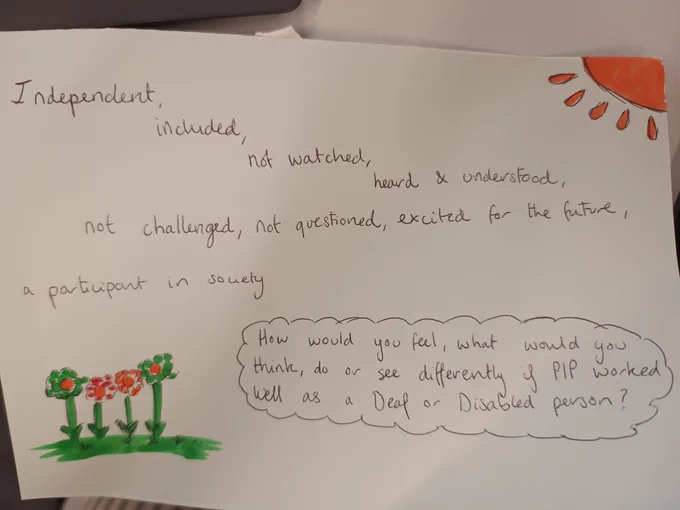 Independent,
included,
not watched,
heard & understood,
not challenged, not questioned, excited for the future,
a participant in society
How would you feel, what would you
think, do or see differently if PIP worked
well as a Deaf or Disabled person?